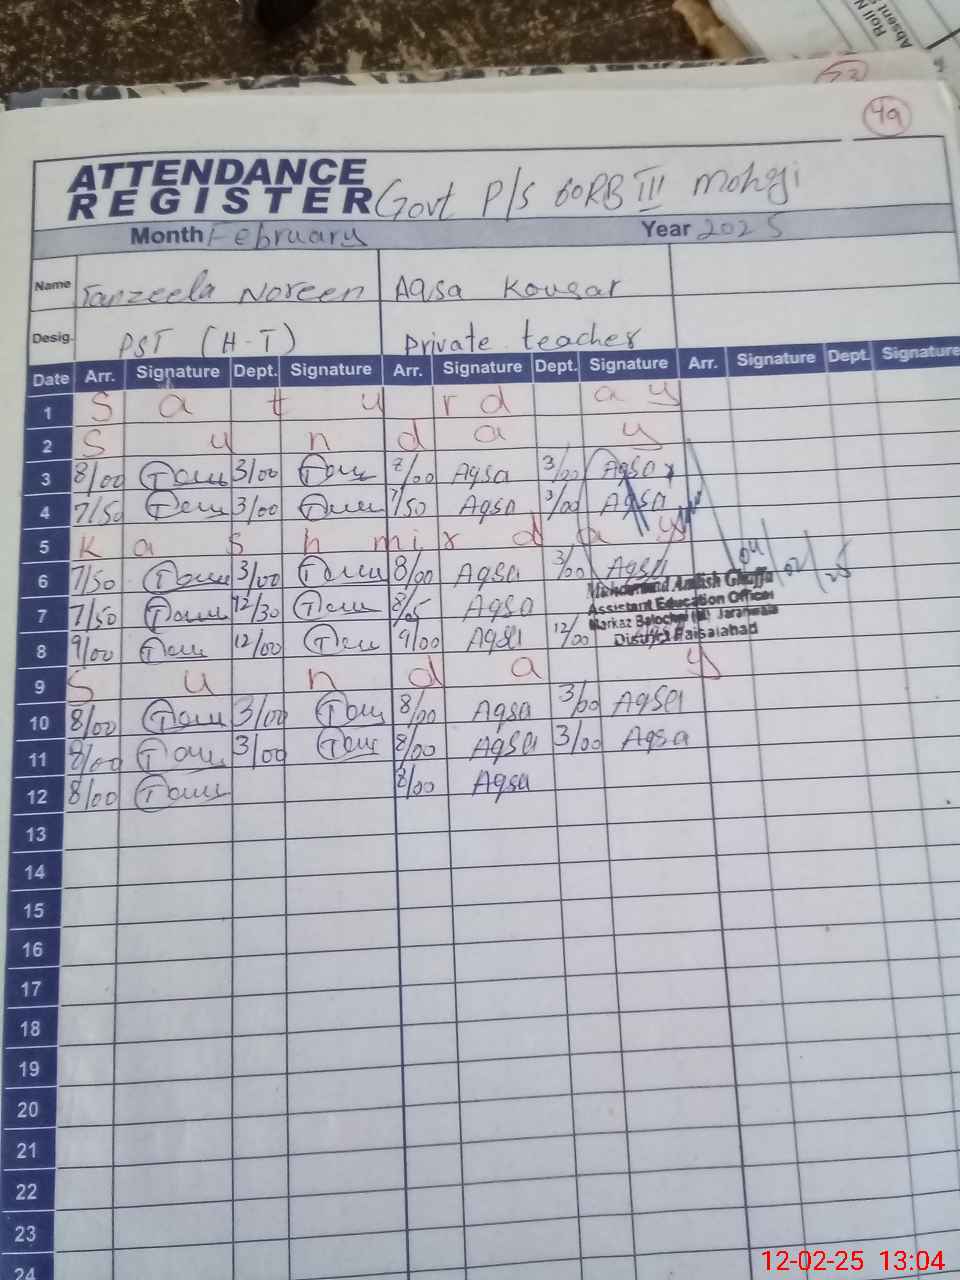 Roll N
Absent
49
ATTENDANCE
REGISTER Govt P/S 60RB III
Month February Year 2025
Name Tanzeela Noreen Aqsa Kousar
Desig. PST (H-T) Private teacher
Date Arr. Signature Dept. Signature Arr. Signature Dept. Signature Arr. Signature Dept. Signature
1 S a t u r d a y
2 S u n d a y
3 8/00 3/00 8/00 Aqsa 3/00 Aqsa
4 7/50 3/00 7/50 Aqsa 3/00 Aqsa
5 K a s h m i r d a y
6 7/50 3/00 8/00 Aqsa 3/00 Aqsa
7 7/50 12/30 8/05 Aqsa
8 9/00 12/00 9/00 Aqsa 12/00
04/02/25
Assistant Education Officer
Markaz Jaranwala
District Faisalabad
9 S u n d a y
10 8/00 3/00 8/00 Aqsa 3/00 Aqsa
11 8/00 3/00 8/00 Aqsa 3/00 Aqsa
12 8/00 8/00 Aqsa
13
14
15
16
17
18
19
20
21
22
23
24
12-02-25 13:04